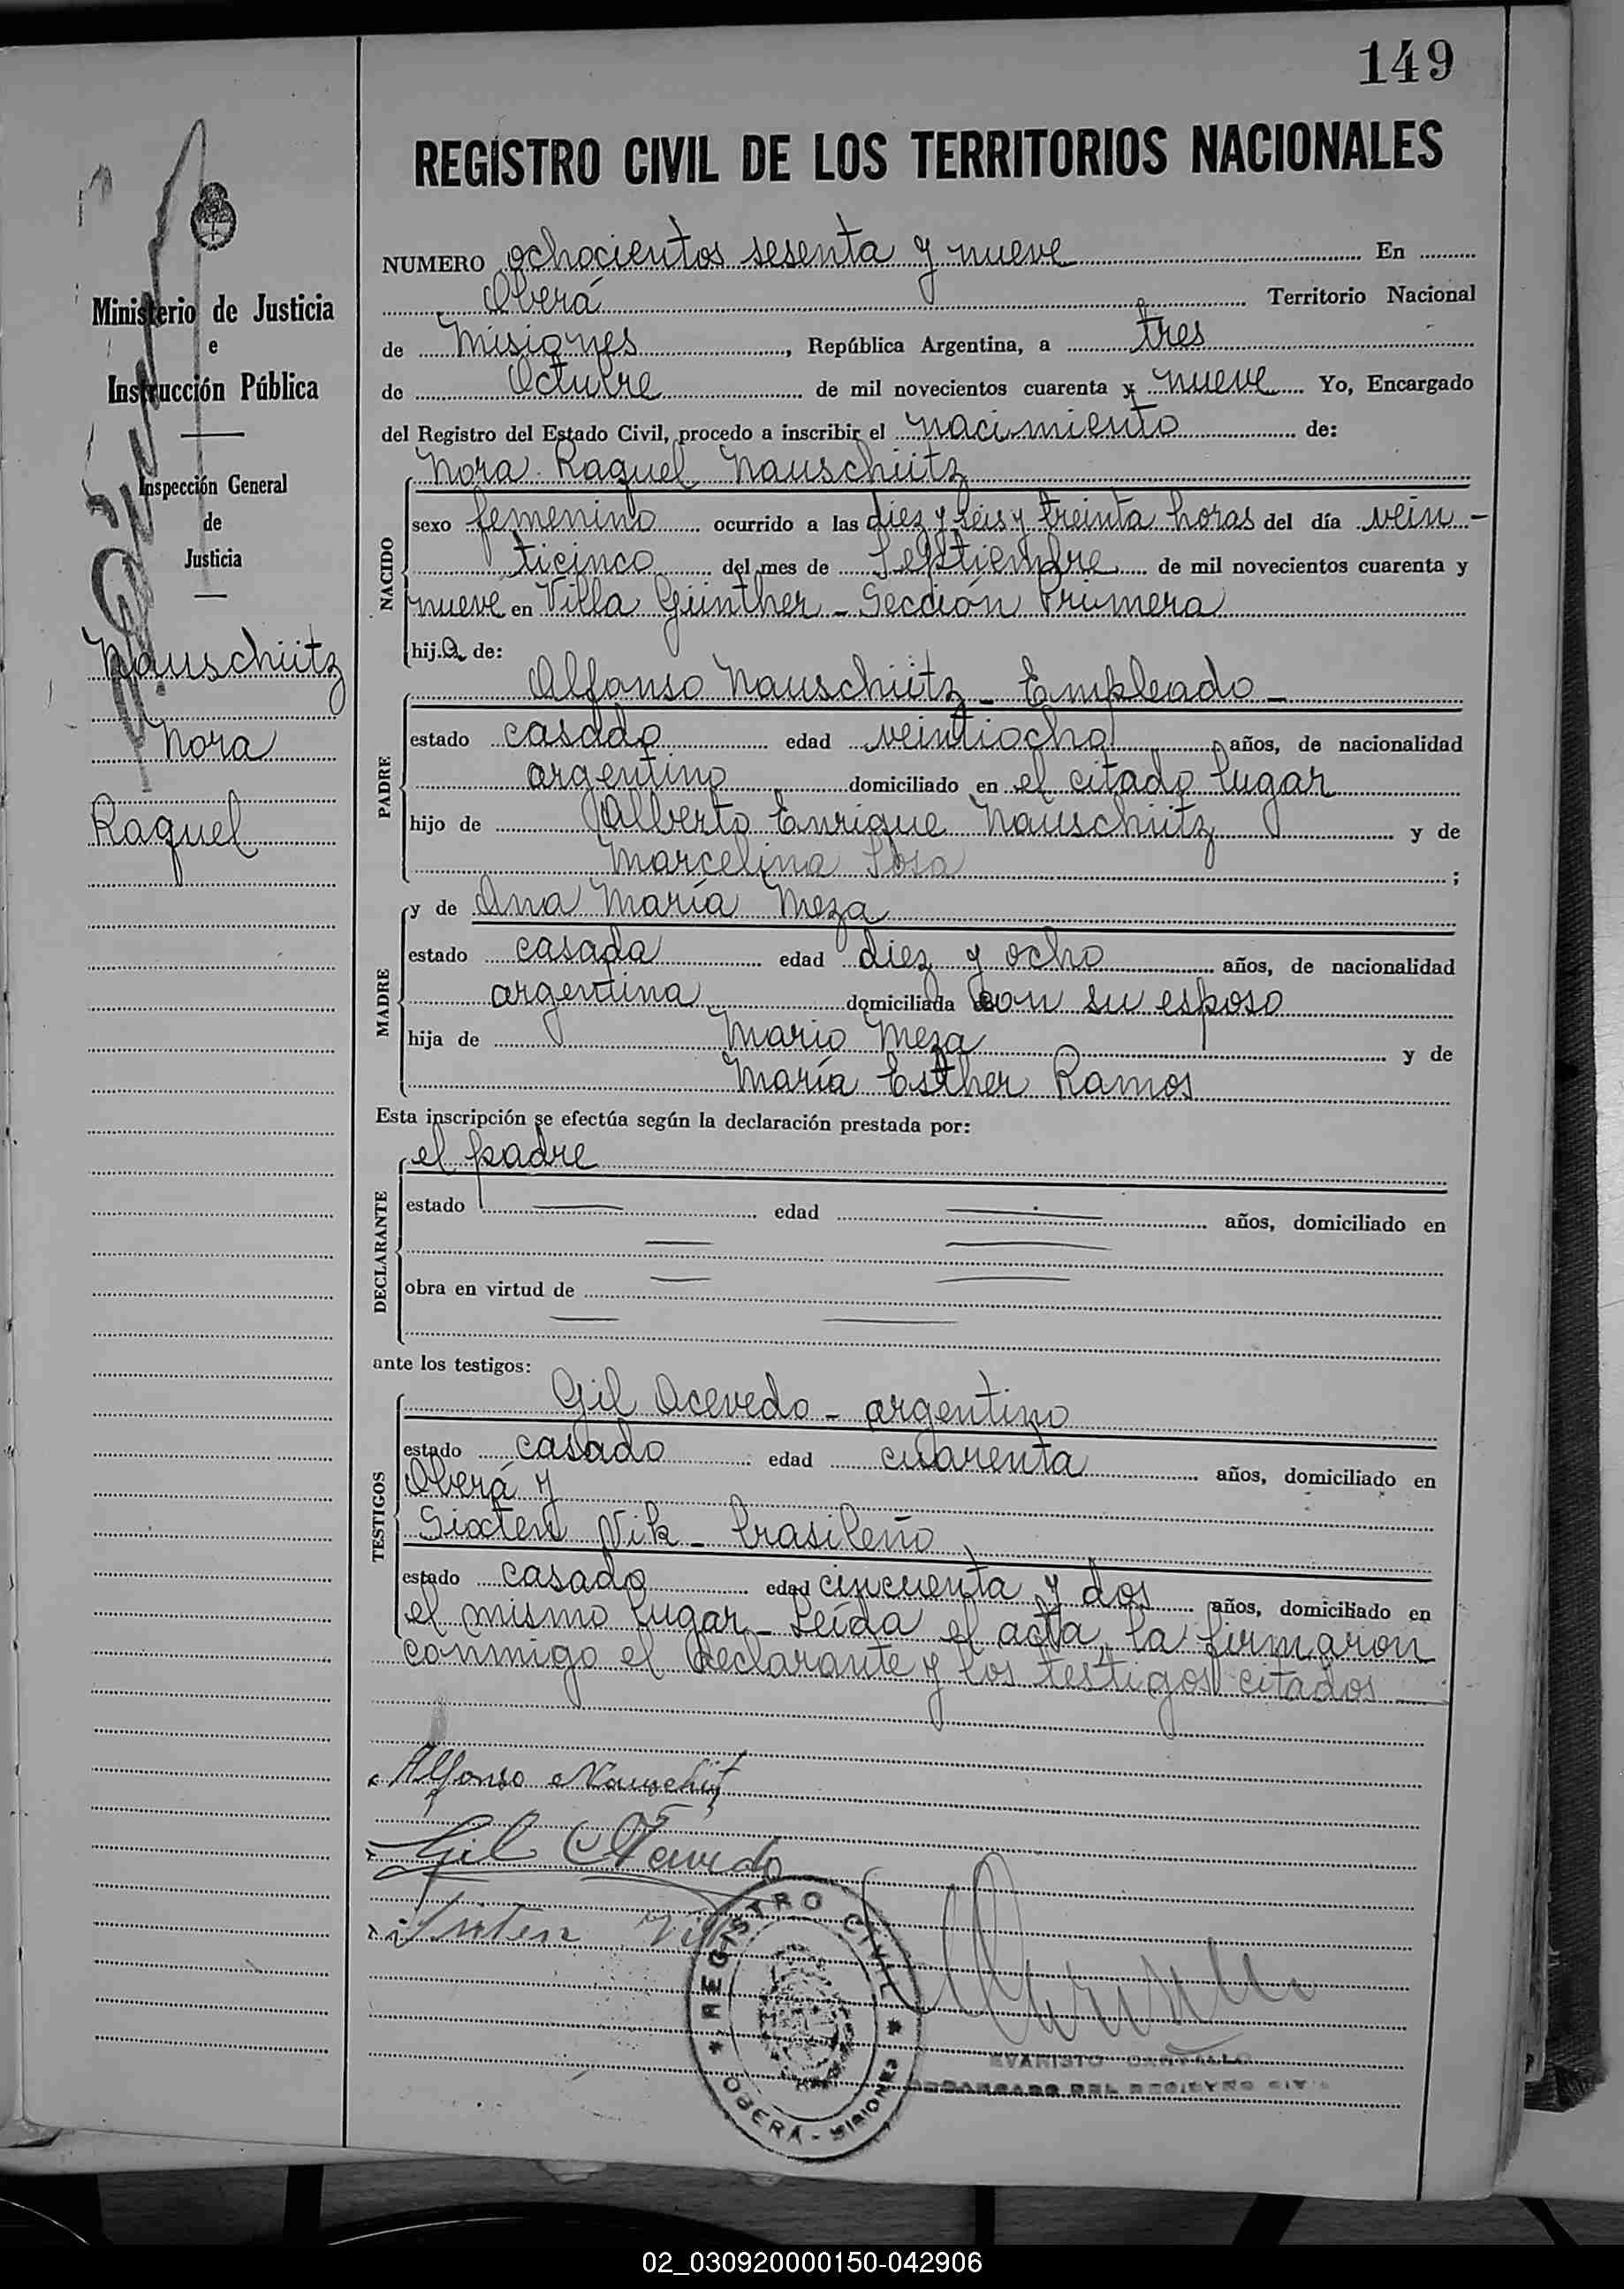 149
REGISTRO CIVIL DE LOS TERRITORIOS NACIONALES
Ministerio de Justicia
e
Instrucción Pública
Inspección General
de
Justicia
Nauschütz
Nora
Raquel
NUMERO ochocientos sesenta y nueve En
Oberá Territorio Nacional
de Misiones, República Argentina, a tres
de Octubre de mil novecientos cuarenta y nueve Yo, Encargado
del Registro del Estado Civil, procedo a inscribir el nacimiento de:
Nora Raquel Nauschütz
NACIDO
sexo femenino ocurrido a las diez y seis y treinta horas del día vein-
ticinco del mes de Septiembre de mil novecientos cuarenta y
nueve en Villa Günther - Sección Primera
hija de:
Alfonso Nauschütz - Empleado -
PADRE
estado casado edad veintiocho años, de nacionalidad
argentino domiciliado en el citado lugar
hijo de Alberto Enrique Nauschütz y de
Marcelina Sosa ;
MADRE
y de Ana María Meza
estado casada edad diez y ocho años, de nacionalidad
argentina domiciliada con su esposo
hija de Mario Meza y de
María Esther Ramos
Esta inscripción se efectúa según la declaración prestada por:
el padre
DECLARANTE
estado edad años, domiciliado en
obra en virtud de
ante los testigos:
Gil Acevedo - argentino
TESTIGOS
estado casado edad cuarenta años, domiciliado en
Oberá y
Sixten Vik - brasileño
estado casado edad cincuenta y dos años, domiciliado en
el mismo lugar - Leída el acta, la firmaron
conmigo el declarante y los testigos citados
Alfonso Nauschüt
Gil Acevedo
Sixten Vik
REGISTRO CIVIL
OBERÁ - MISIONES
EVARISTO
ENCARGADO DEL REGISTRO CIVIL
02_030920000150-042906